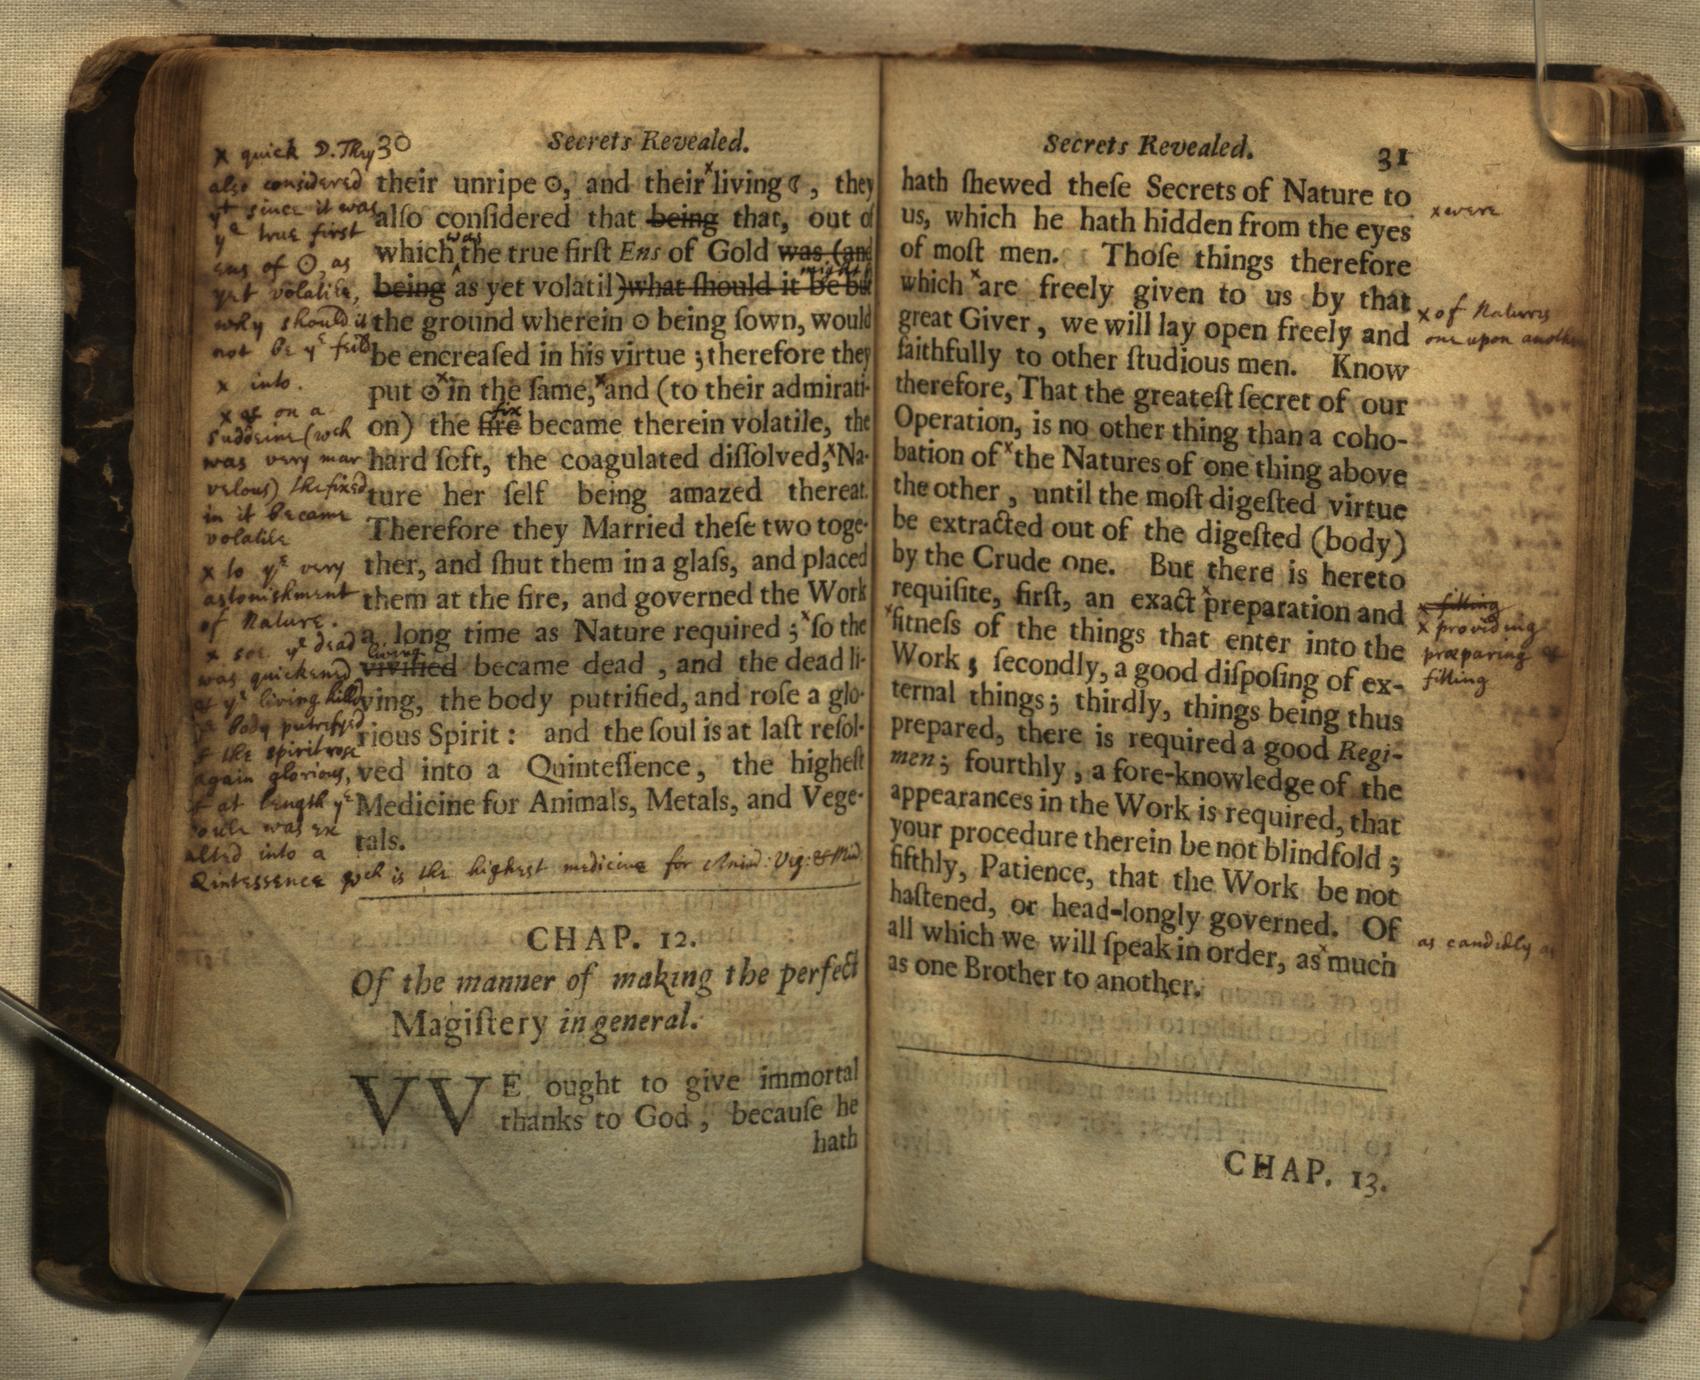 30 Secrets Revealed.
their unripe ☉, and their ˣliving ☾, they
alſo conſidered that being that, out of
which was the true firſt Ens of Gold was (and
being as yet volatil) what ſhould it be but
the ground wherein ☉ being ſown, would
be encreaſed in his virtue ; therefore they
put ☉ ˣin the ſame, ˣand (to their admirati-
on) the fire fix became therein volatile, the
hard ſoft, the coagulated diſſolved, ˣNa-
ture her ſelf being amazed thereat.
Therefore they Married theſe two toge-
ther, and ſhut them in a glaſs, and placed
them at the fire, and governed the Work
a long time as Nature required ; ˣſo the
vivified living became dead , and the dead li-
ving, the body putrified, and roſe a glo-
rious Spirit : and the ſoul is at laſt reſol-
ved into a Quinteſſence, the higheſt
Medicine for Animals, Metals, and Vege-
tals.
x quick D. They
also considered
yt since it was
ye true first
ens of ☉, as
yet volatile,
why should it
not be ye feild
x into.
x & on a
suddeine (wch
was very mar
velous) the fixed
in it became
volatile
x to ye very
astonishment
of Nature.
x soe ye dead
was quickened
& ye living killed
ye body putrefyed
& the spirit rose
again glorious,
& at length ye
soule was ex
alted into a
Quintessence wch is the highest medicine for Anim: Veg: & Min.
CHAP. 12.
Of the manner of making the perfect
Magiſtery in general.
WE ought to give immortal
thanks to God , becauſe he
hath
Secrets Revealed. 31
hath ſhewed theſe Secrets of Nature to
us, which he hath hidden from the eyes
of moſt men. Thoſe things therefore
which ˣare freely given to us by that
great Giver , we will lay open freely and
faithfully to other ſtudious men. Know
therefore, That the greateſt ſecret of our
Operation, is no other thing than a coho-
bation of ˣthe Natures of one thing above
the other , until the moſt digeſted virtue
be extracted out of the digeſted (body)
by the Crude one. But there is hereto
requiſite, firſt, an exact ˣpreparation and
ˣfitneſs of the things that enter into the
Work ; ſecondly, a good diſpoſing of ex-
ternal things ; thirdly, things being thus
prepared, there is required a good Regi-
men ; fourthly , a fore-knowledge of the
appearances in the Work is required, that
your procedure therein be not blindfold ;
fifthly, Patience, that the Work be not
haſtened, or head-longly governed. Of
all which we will ſpeak in order, as ˣmuch
as one Brother to another.
x were
x of Natures
one upon another
x fitting
x providing
præparing &
fitting
as candidly as
CHAP. 13.